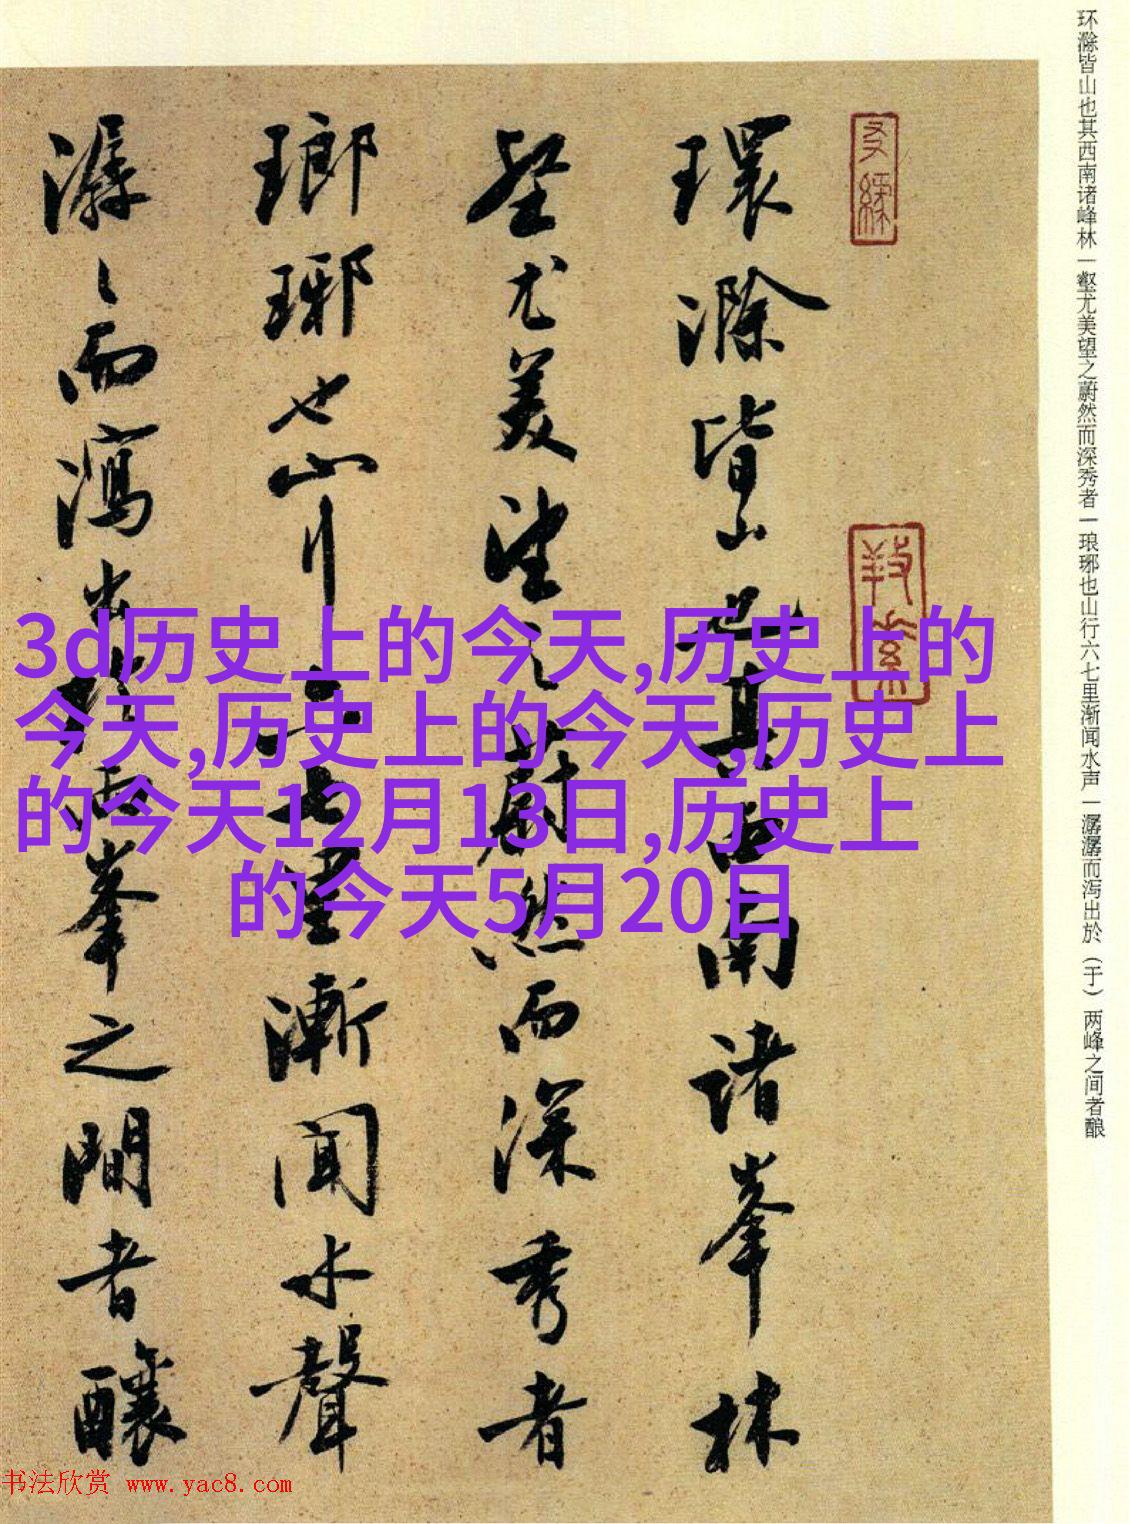 环滁皆山也其西南诸峰林一壑尤美望之蔚然而深秀者一琅琊也山行六七里渐闻水声一潺潺而泻出於（于）两峰之间者酿
環滁皆山也其西南諸峯林
壑尤美望之蔚然而深秀者
瑯琊也山行六七里漸聞水聲
潺々而瀉出於兩峯之間者釀
3d历史上的今天,历史上的
今天,历史上的今天,历史上
的今天12月13日,历史上
的今天5月20日
书法欣赏 www.yac8.com